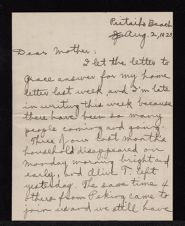 Peitaiho Beach
Aug. 2, 1923
Dear Mother:
I let the letter to
Grace answer for my home
letter last week and I'm late
in writing this week because
there have been so many
people coming and going.
Three of our last month's
household disappeared on
Monday morning bright and
early; and Alice T. left
yesterday. The same time 4
others from Peking came to
join us and we still have